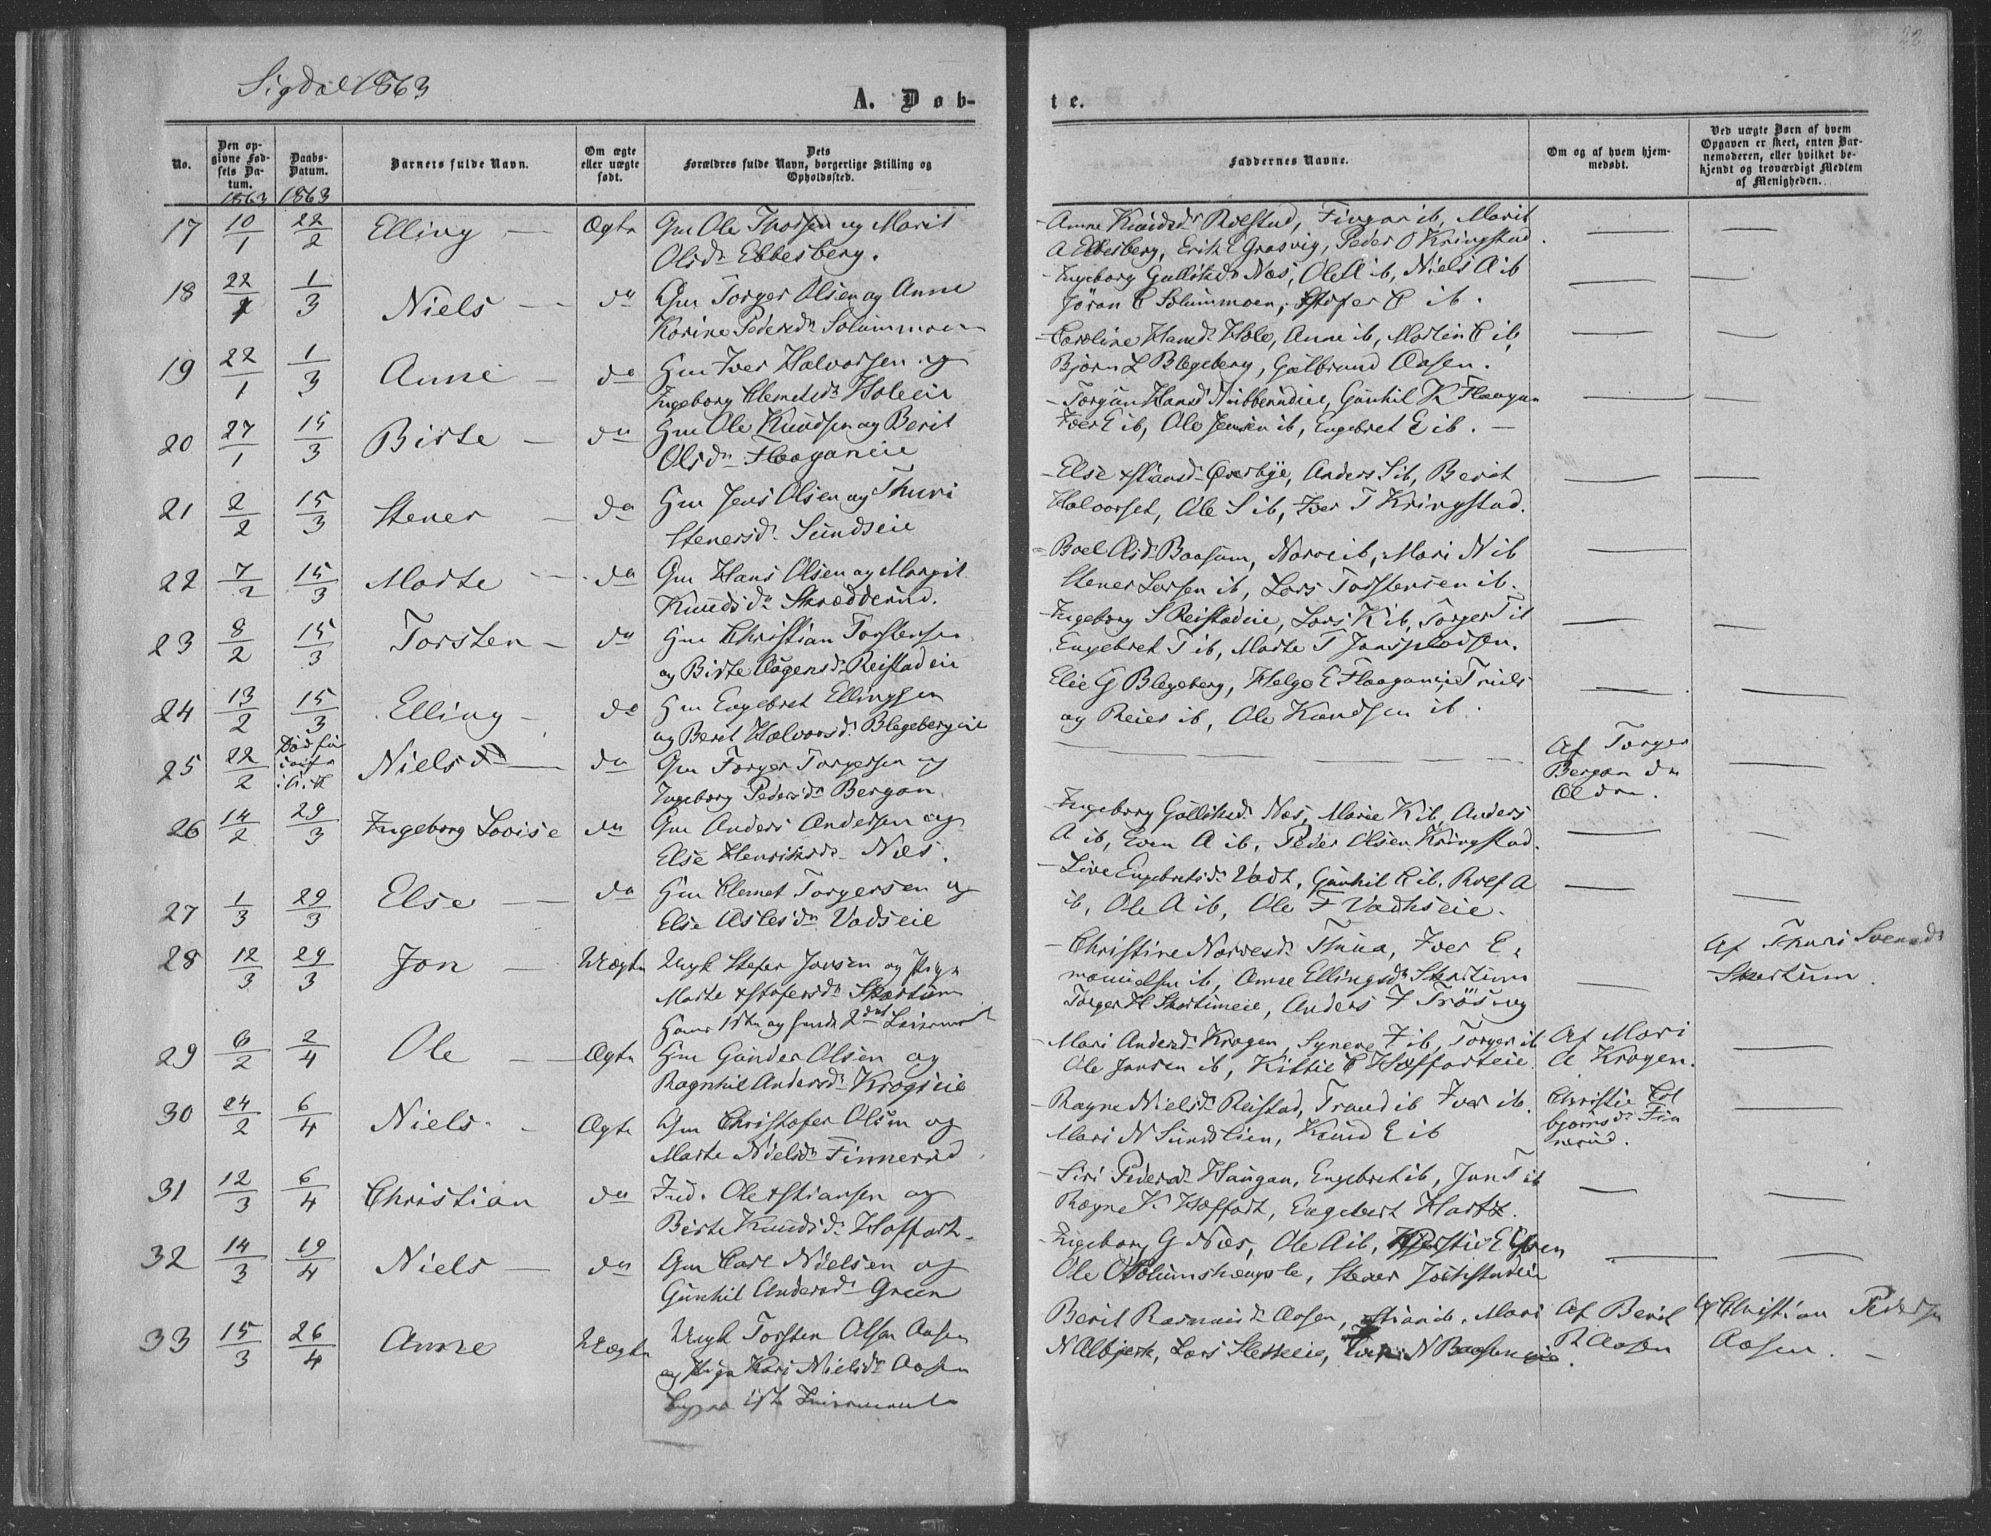 22
Sigdal 1863
A. Døb-
te.
No.
Den opgivne Fødsels Datum.
1863
Daabs-Datum.
1863
Barnets fulde Navn.
Om ægte eller uægte født.
Dets Forældres fulde Navn, borgerlige Stilling og Opholdssted.
Faddernes Navne.
Om og af hvem hjemmedøbt.
Ved uægte Børn af hvem Opgaven er skeet, enten Barnemoderen, eller hvilket bekjendt og troværdigt Medlem af Menigheden.
17 10/1 22/2 Elling — Ægte Gm Ole Thorsen og Marit
Olsdr Ebbesberg.
Anne Knudsdr Rolstad, Fingar ib, Marit
A Ebbesberg, Erik E Grøsvig, Peder O Kringstad.
18 22/1 1/3 Niels — do Gm Torger Olsen og Anne
Karine Pedersdr Solummoen
Ingeborg Gulliksdr Næs, Ole A ib, Niels A ib
Jöran C Solummoen, Stofer C ib.
19 22/1 1/3 Anne — do Hm Iver Halvorsen og
Ingeborg Clemetsdr Holeeie
Caroline Hansdr Hole, Anne ib, Martin C ib,
Bjørn L Blegeberg, Gulbrand Aasen.
20 27/1 15/3 Birte — do Hm Ole Knudsen og Berit
Olsdr Haaganeie
Torgun Hansdr Nubberudeie, Gunhil K Haagan
Iver E ib, Ole Jensen ib, Engebret E ib.
21 2/2 15/3 Stener — do Hm Jens Olsen og Thuri
Stenersdr Sundseie
Else Stiansdr Øverbye, Anders S ib, Berit
Halvorset, Ole S ib, Iver T Kringstad.
22 7/2 15/3 Marte — do Gm Hans Olsen og Margit
Knudsdr Skrædderud.
Boel Olsdr Baasum, Narve ib, Mari N ib
Stener Larsen ib, Lars Torstensen ib.
23 8/2 15/3 Torsten — do Hm Christian Torstensen
og Birte Aagensdr Reistadeie
Ingeborg S Reistadeie, Lars K ib, Torger T ib
Engebret T ib, Marte T Jonspladsen.
24 13/2 15/3 Elling — do Hm Engebret Ellingsen
og Berit Halvorsdr Blegebergeie
Elie G Blegeberg, Helge E Haaganeie, Truls
og Reier ib, Ole Knudsen ib.
25 22/2 Niels — do Gm Torger Torgersen og
Ingeborg Pedersdr Bergan.
Af Torger
Bergan
26 14/2 29/3 Ingeborg Lovise do Gm Anders Andersen og
Else Henriksdr Næs.
Ingeborg Gulliksdr Næs, Marie K ib, Anders
A ib, Even A ib, Peder Olsen Kringstad.
27 1/3 29/3 Else — do Hm Clemet Torgersen og
Else Aslesdr Vadseie
Live Engebretsdr Vadt, Gunhil C ib. Rolf A
ib, Ole A ib, Ole F Vadtseie.
28 12/3 29/3 Jon — Uægte Ungk Stefer Jonsen og Pige
Marte Stofersdr Skartum
Hans 1ste og hendes 2det Leiermaal
Christine Narvesdr Thua, Iver E-
manuelsen ib, Anne Ellingsdr Skartum
Torger H Skartumeie, Anders F
Af Thuri Svensdr
Skartum
29 6/2 2/4 Ole — Ægte Hm Gunder Olsen og
Ragnhil Andersdr Krogseie
Mari Andersdr Krogen, Synere F ib, Torger ib
Ole Jonsen ib, Kittil C Hoffarteie.
Af Mari
A Krogen.
30 24/2 6/4 Niels. Ægte Gm Christofer Olsen og
Marte Nielsdr Finnerud
Ragne Nielsdr Reistad, Trond ib Iver ib.
Mari N Sundslien, Knud E ib
Christie Col
bjørnsdr Fin
nerud.
31 12/3 6/4 Christian do Ind. Ole Stiansen og
Birte Knudsdr Hoffart.
Siri Pedersdr Haugan, Engebret ib, Jon T ib
Ragne K Hoffart, Engebert Hartz.
32 14/3 19/4 Niels — do Gm Carl Nielsen og
Gunhil Andersdr Green
Ingeborg G Næs, Ole A ib, E Green
Ole O Solumshengsle, Stener
33 15/3 26/4 Anne Uægte Ungk Torsten Olsen Aasen
og Pige Kari Nielsdr Aasen
Begges 1ste Leiermaal
Berit Rasmusdr Aasen, Stian ib. Mari
N Albjerk, Lars Sletteeie, N Baaseneie.
Af Berit
R Aasen
Af Christian Pedersen
Aasen.